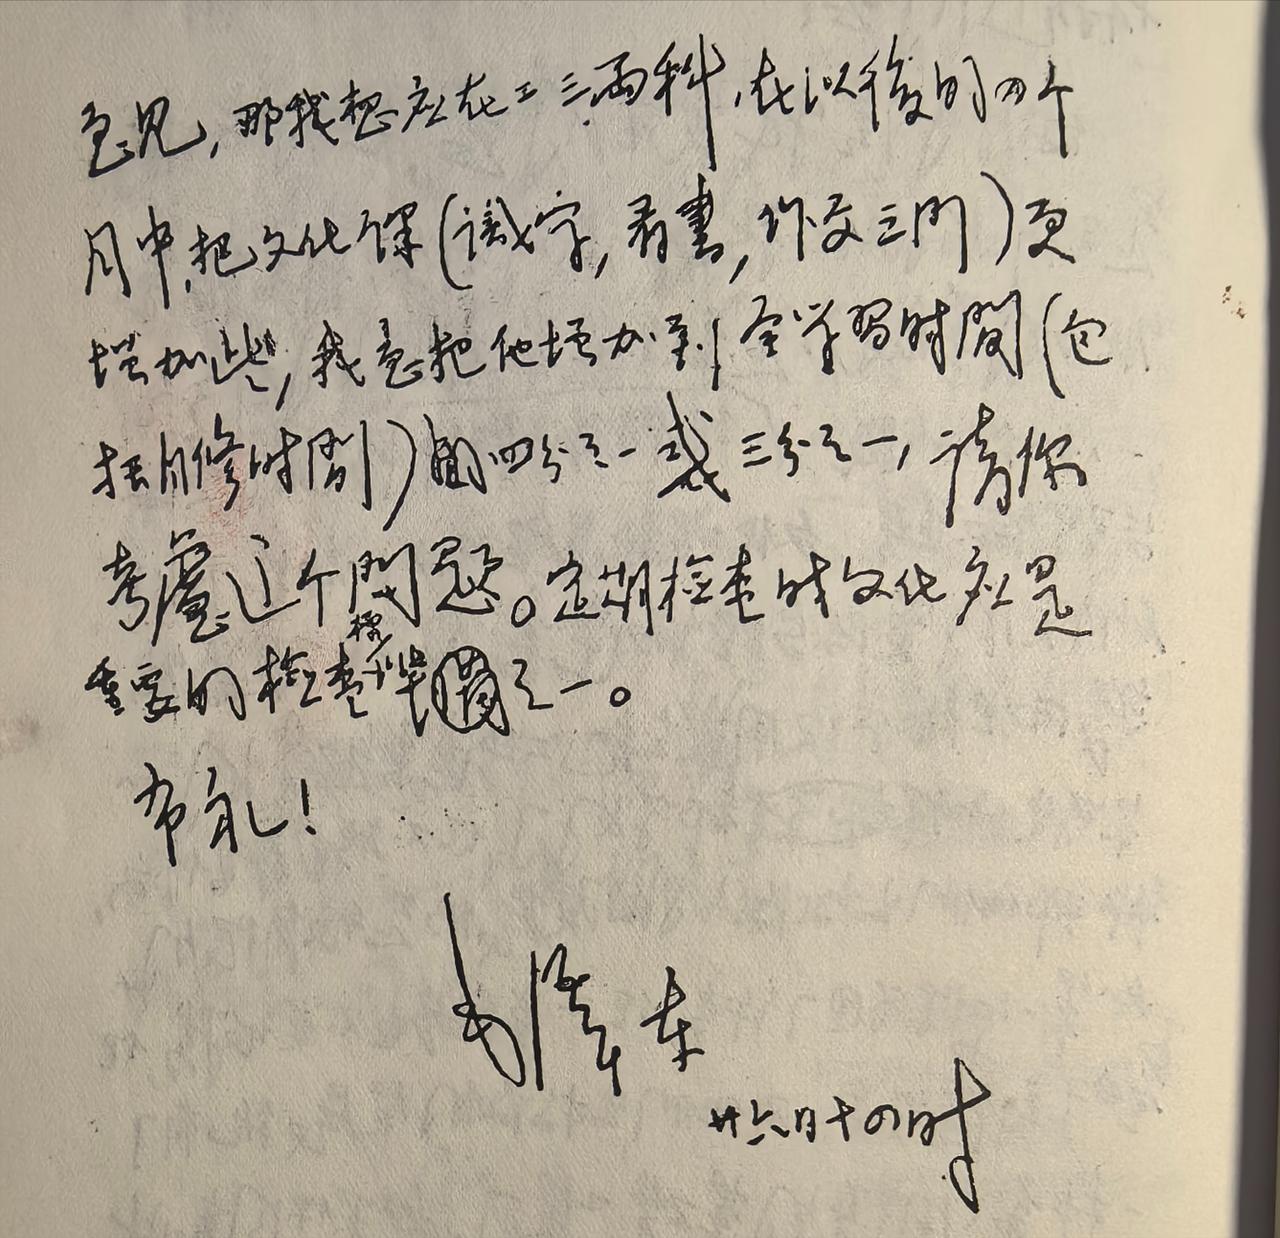 意见,那我想应在二三两科,在以後的四个
月中,把文化课(識字,看書,作文三門)更
增加些,我意把他增加到全学習时間(包
括自修时間)的四分之一或三分之一,請你
考慮这个問题。定期检查时文化应是
重要的检查標準之一。
布礼!
毛澤东
廿六日十四时